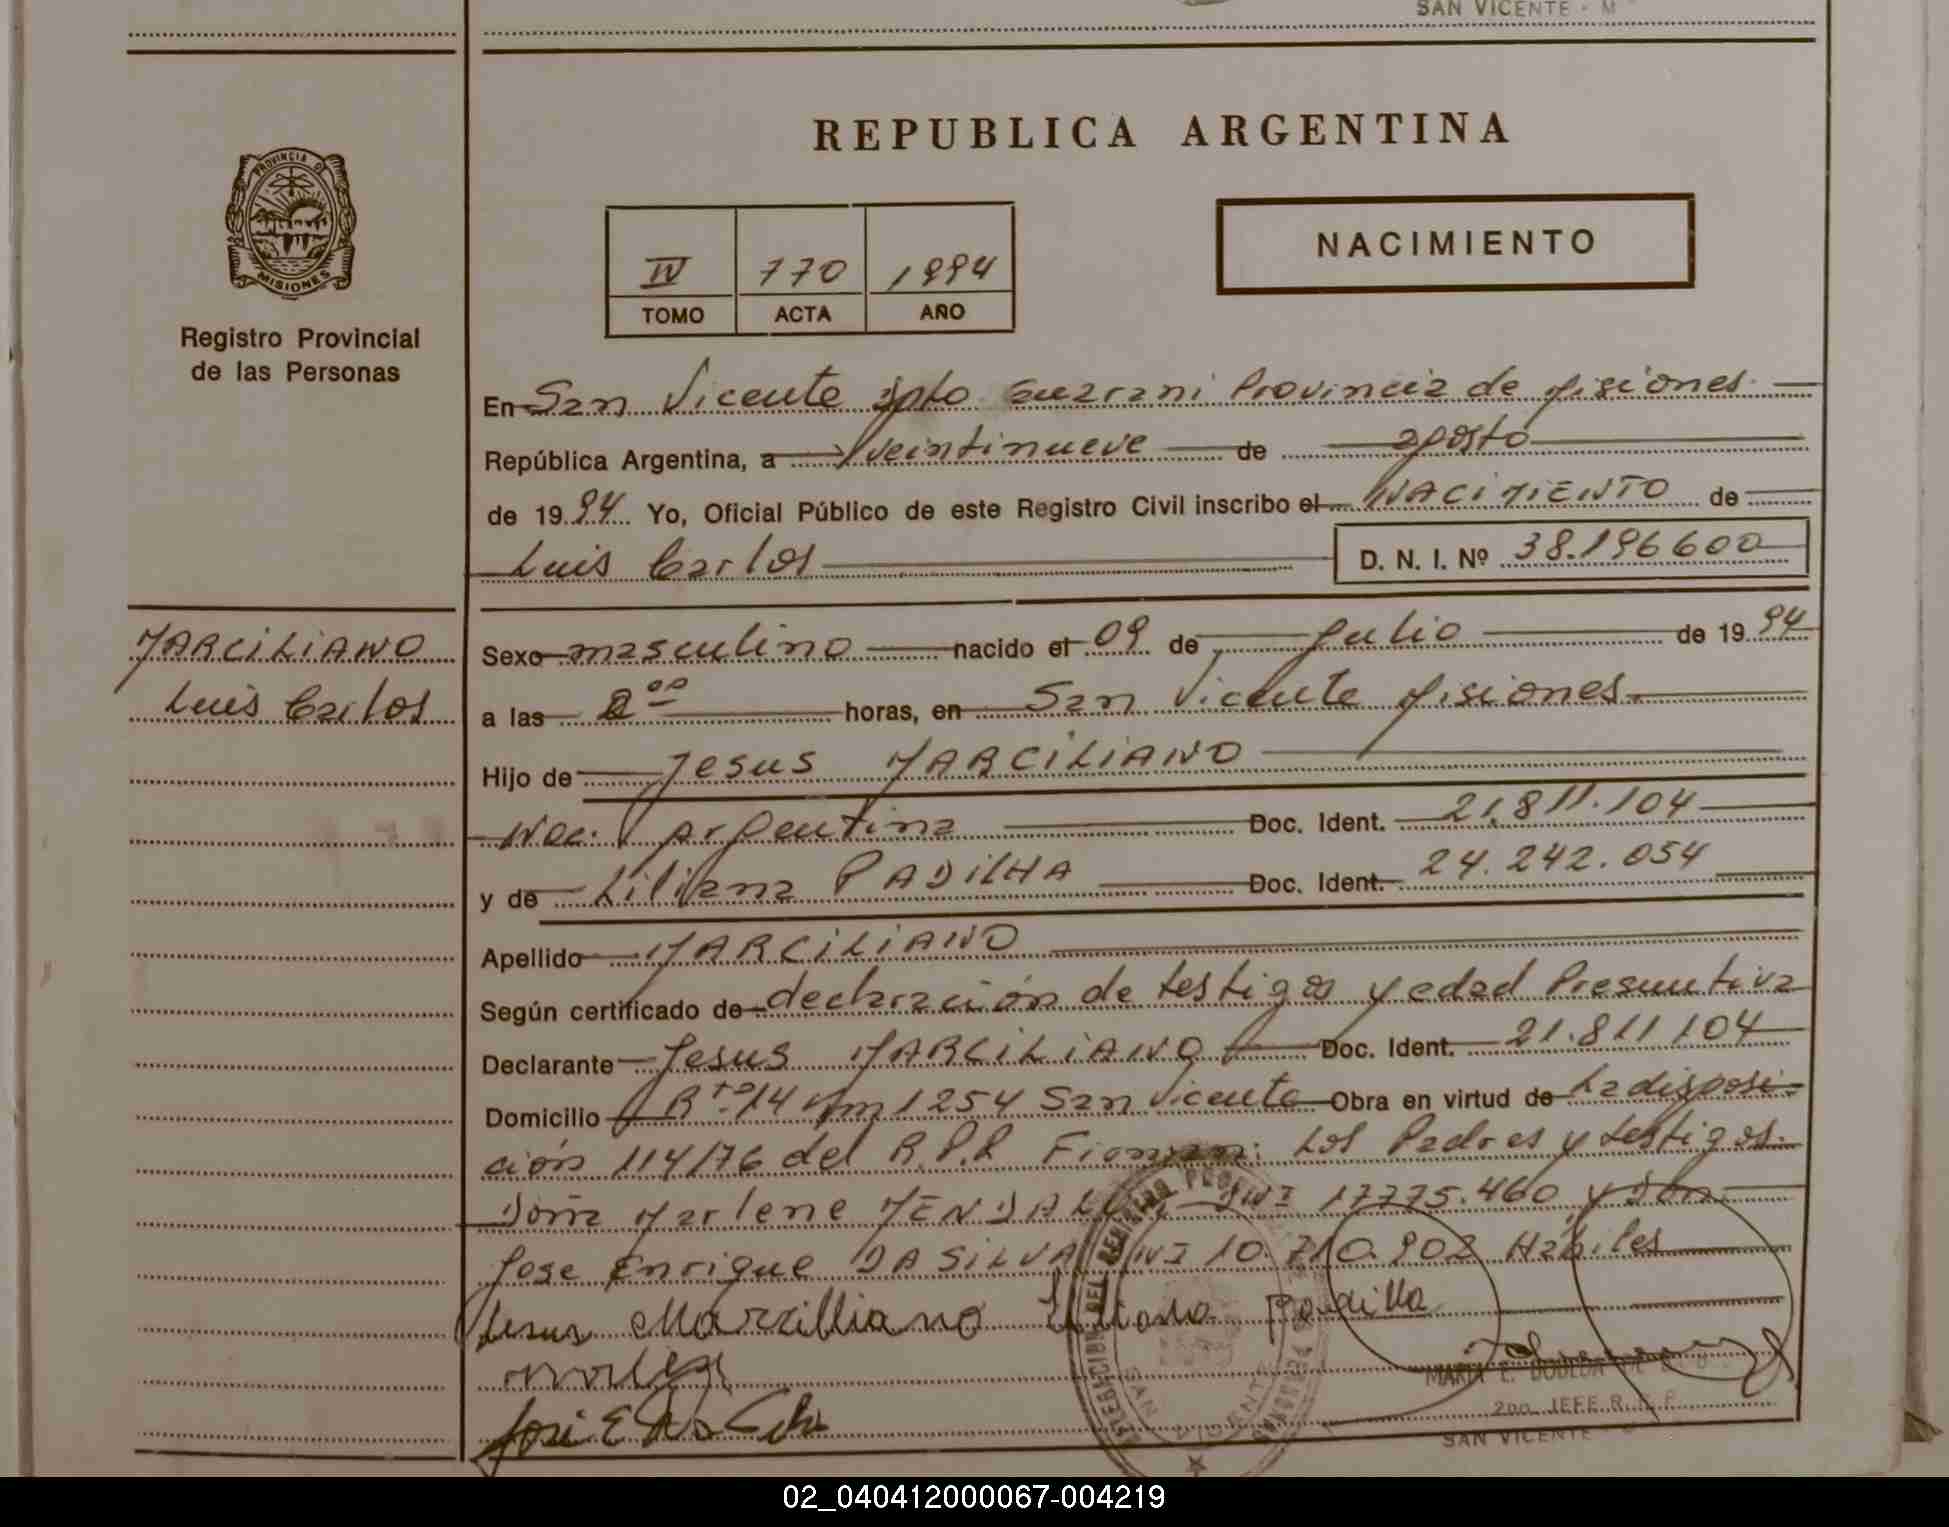 SAN VICENTE - M
REPUBLICA ARGENTINA
PROVINCIA DE
MISIONES
Registro Provincial
de las Personas
IV 770 1994
TOMO ACTA AÑO
NACIMIENTO
En San Vicente Dpto Guarani Provincia de Misiones
República Argentina, a veintinueve de agosto
de 1994 Yo, Oficial Público de este Registro Civil inscribo el NACIMIENTO de
Luis Carlos D. N. I. Nº 38.196600
MARCILIANO
Luis Carlos
Sexo masculino nacido el 09 de Julio de 1994
a las 2 00 horas, en San Vicente Misiones.
Hijo de Jesus MARCILIANO
Nac. Argentina Doc. Ident. 21.811.104
y de Liliana PADILHA Doc. Ident. 24.242.054
Apellido MARCILIANO
Según certificado de declaración de testigos y edad Presuntiva
Declarante Jesus MARCILIANO Doc. Ident. 21.811104
Domicilio Rta. 14 Km 1254 San Vicente Obra en virtud de La disposi-
ción 114/76 del R.P.P. Firman: Los Padres y testigos.
Doña Marlene DNI 17775.460 y Don
Jose Enrique DA SILVA DNI 10.710.902 Hábiles
Jesus Marcilliano Liliana Padilla
José E Da Silva
MARIA E.
2DO. JEFE R.P.P.
SAN VICENTE
02_040412000067-004219